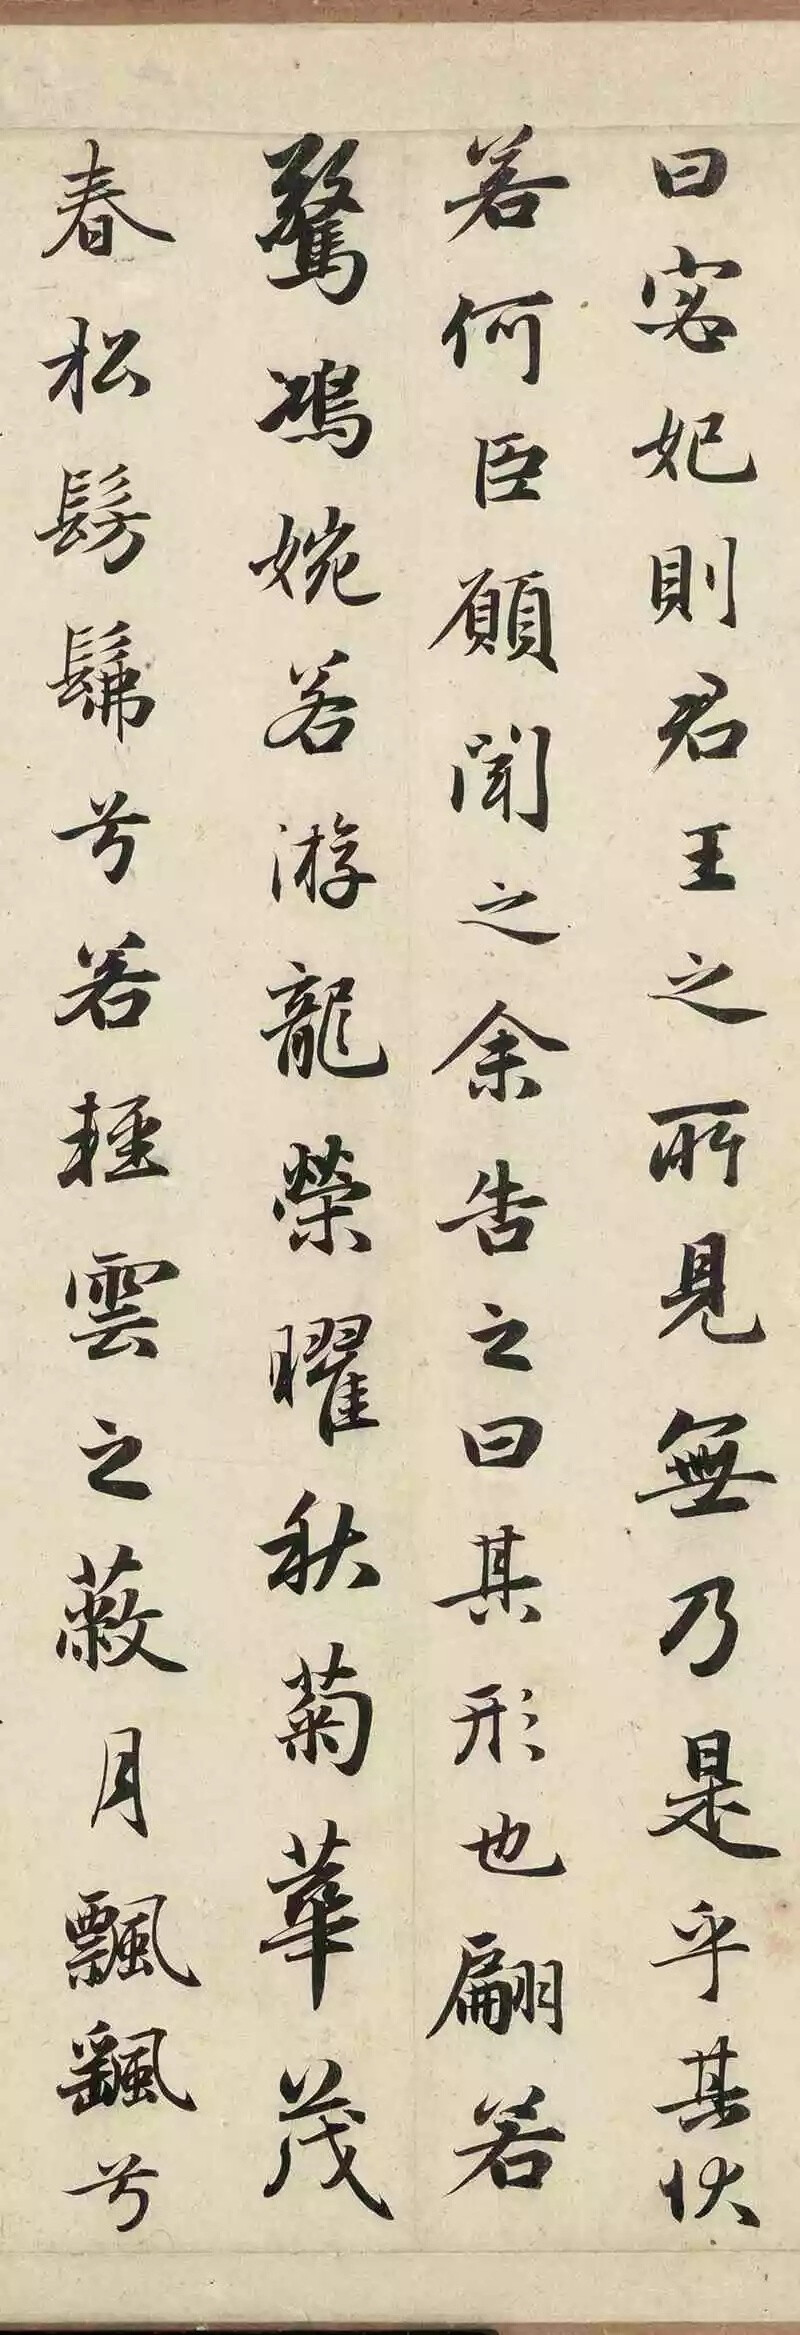 曰宓妃則君王之所見無乃是乎其狀
若何臣願聞之余告之曰其形也翩若
驚鴻婉若游龍榮曜秋菊華茂
春松髣髴兮若輕雲之蔽月飄颻兮